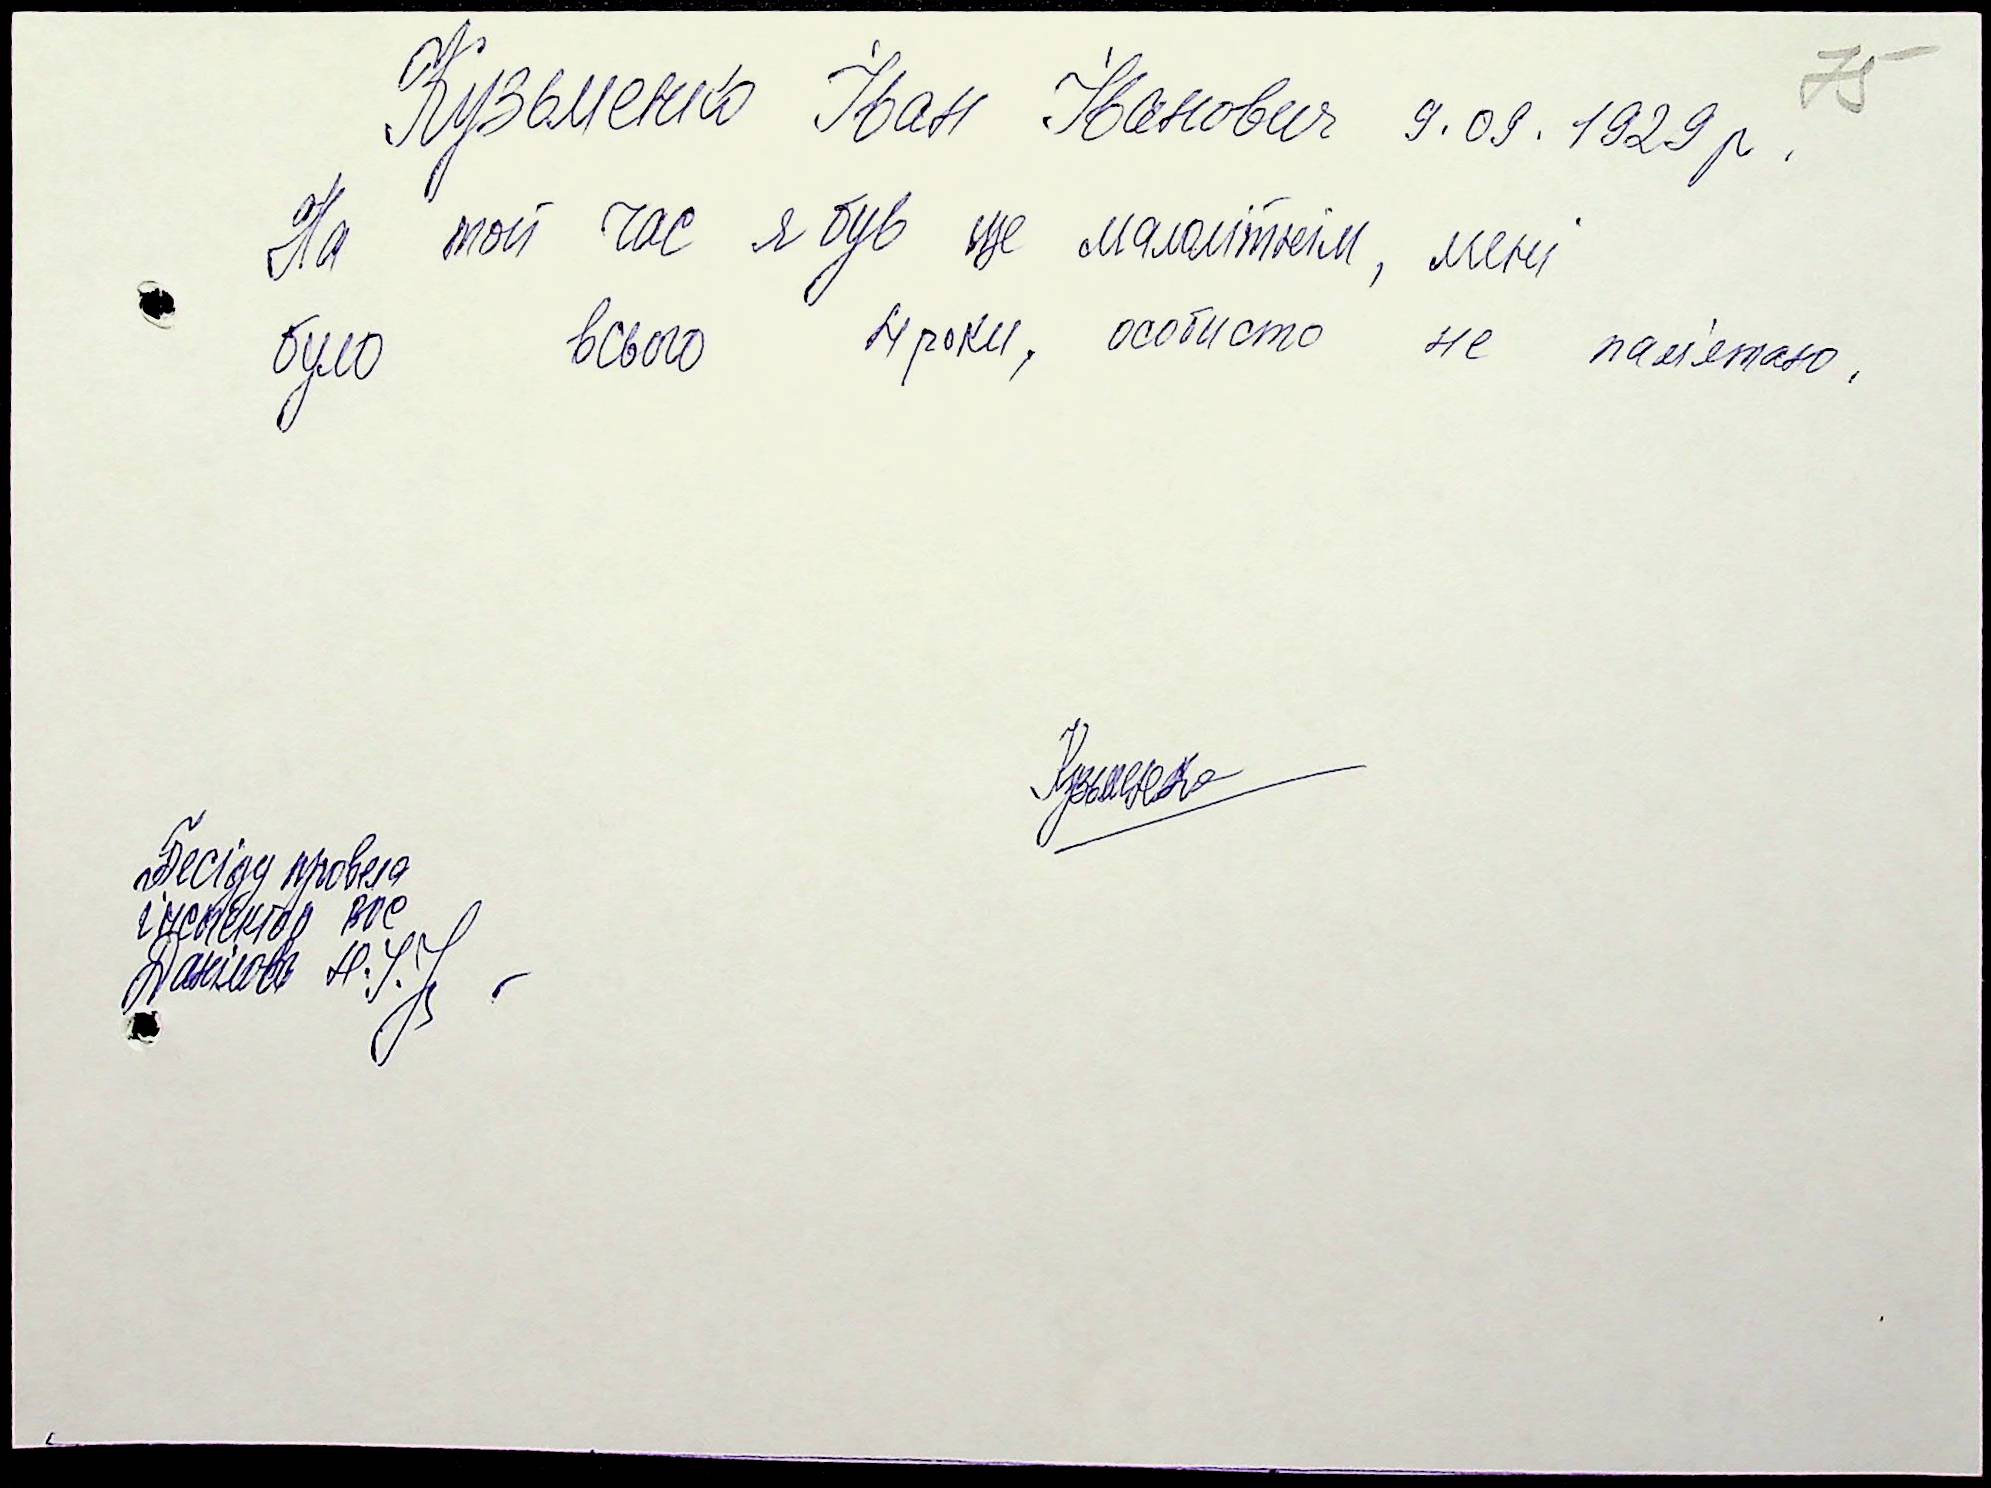 75
Кузьменко Іван Іванович 9.09.1929 р.
На той час я був ще малолітнім, мені
було всього 4 роки, особисто не пам'ятаю.
Кузьменко
Бесіду провела
інспектор ВОС
Данілова Н.І.